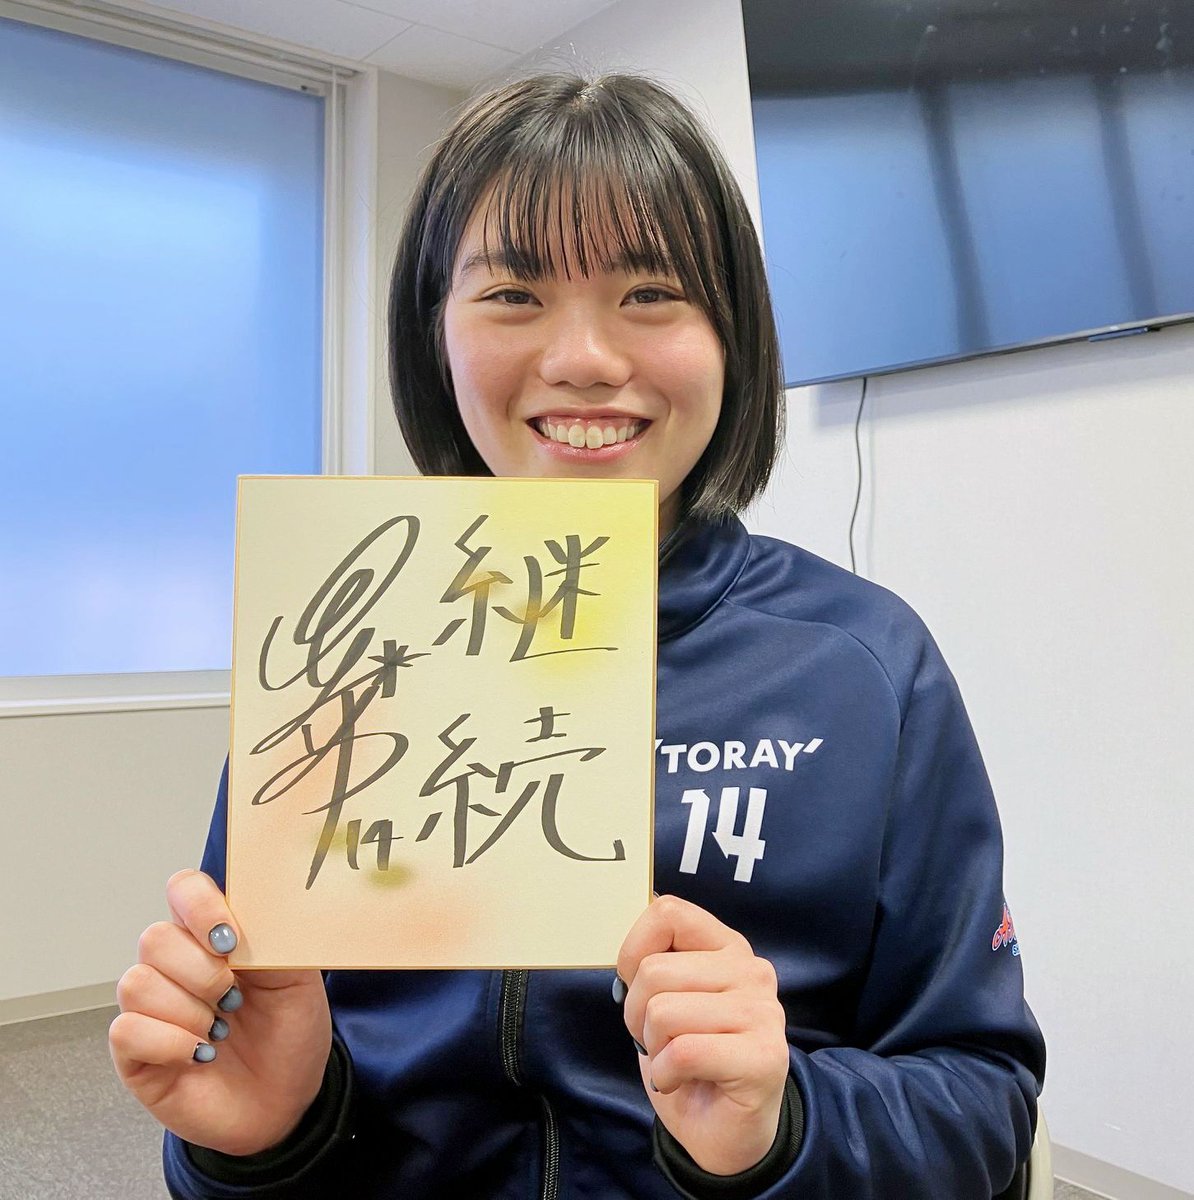 継
続
14
TORAY
14